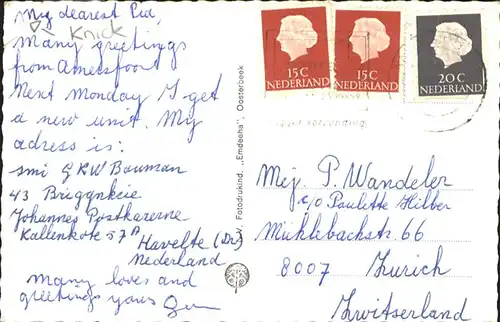 My dearest Pid,
Knick
Many greetings
from Amersfoort
Next Monday I get
a new unit. My
adress is:
smi G RW Bauman
43 Briggnkeie
Johannes Postkazerne
Kallenkote 57A
Havelte (Dr)
Nederland
Many loves and
greetings yours
V. Fotodrukind. „Emdeeha", Oosterbeek
15 C
NEDERLAND
15 C
NEDERLAND
20 C
NEDERLAND
Mej. P. Wandeler
c/o Paulette Hilber
Mühlebachstr. 66
8007 Zurich
Zwitserland